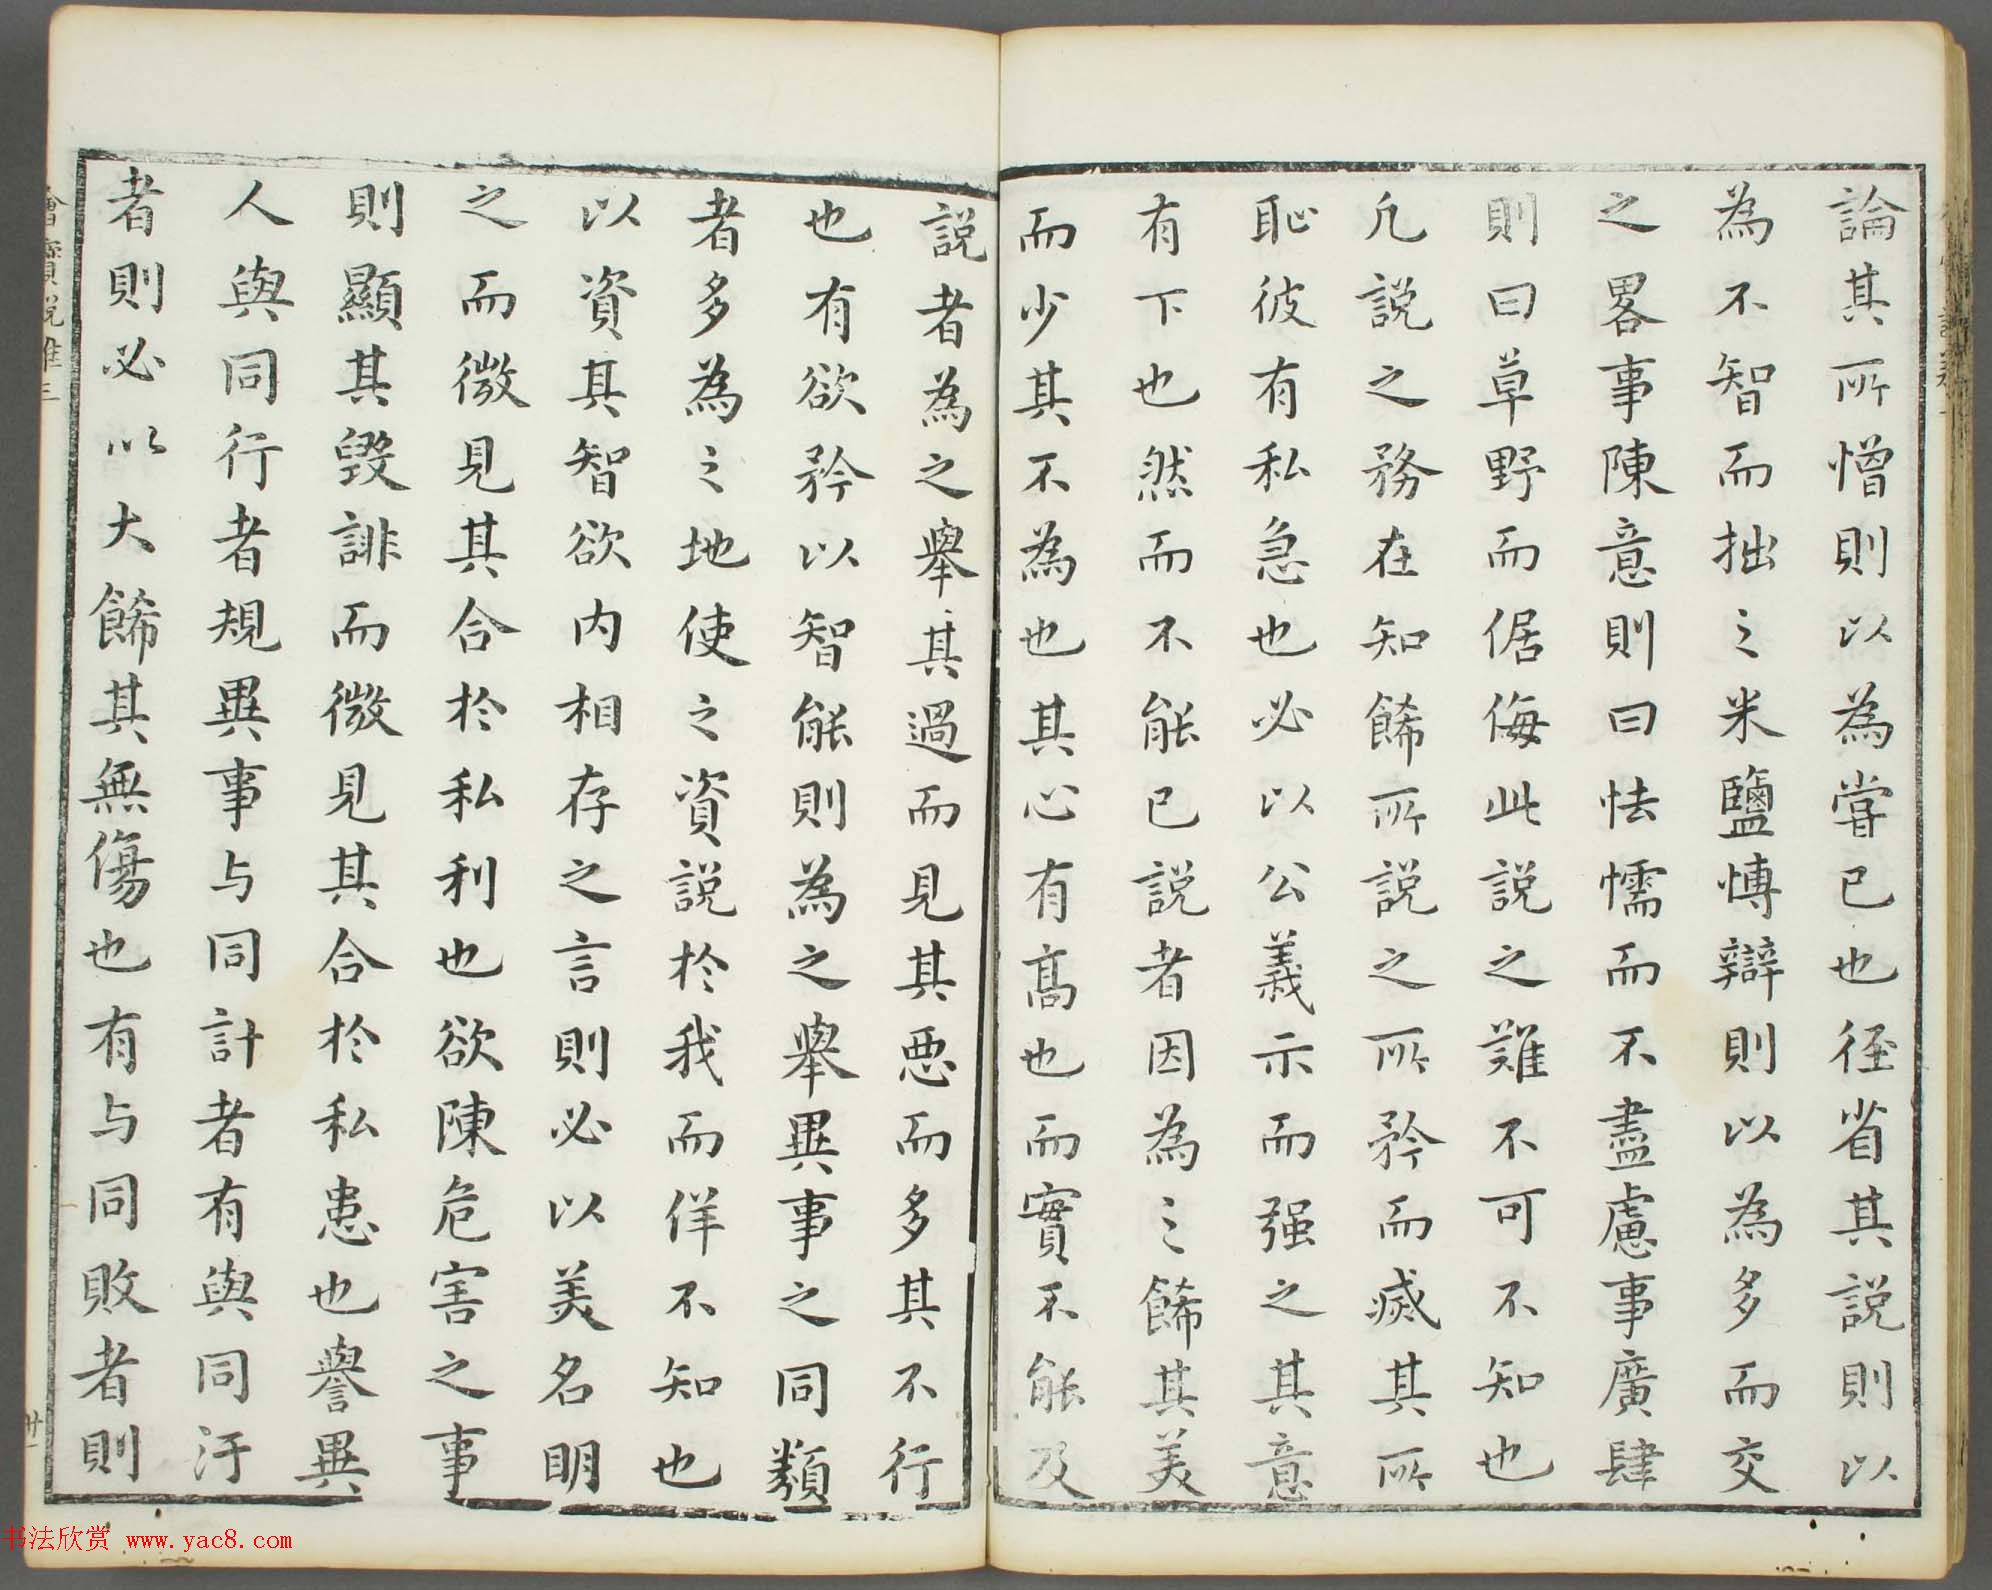 論其所憎則以為嘗已也径省其説則以
為不智而拙之米鹽博辯則以為多而交
之畧事陳意則曰怯懦而不盡慮事廣肆
則曰草野而倨侮此説之難不可不知也
凡説之務在知餙所説之所矜而滅其所
恥彼有私急也必以公義示而强之其意
有下也然而不能已説者因為之餙其美
而少其不為也其心有髙也而實不能及
説者為之舉其過而見其悪而多其不行
也有欲矜以智能則為之舉異事之同類
者多為之地使之資説於我而佯不知也
以資其智欲内相存之言則必以美名明
之而微見其合於私利也欲陳危害之事
則顯其毀誹而微見其合於私患也譽異
人與同行者規異事与同計者有與同汙
者則必以大餙其無傷也有与同敗者則
書法欣赏 www.yac8.com